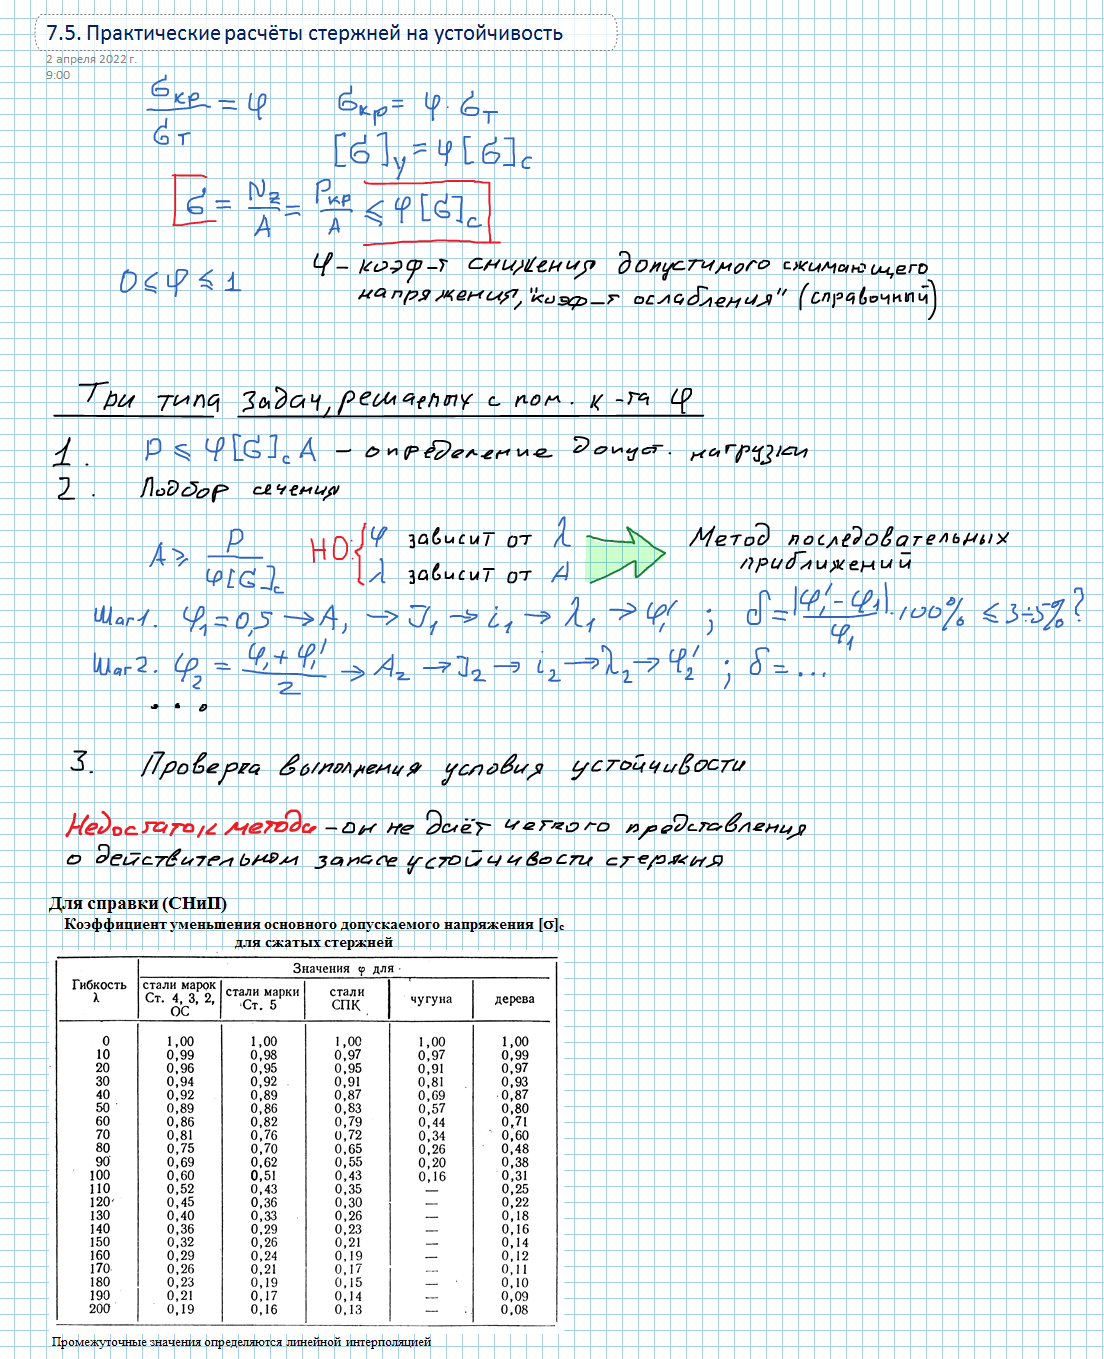 7.5. Практические расчёты стержней на устойчивость
2 апреля 2022 г.
9:00
σкр/σт = φ     σкр = φ · σт
[σ]у = φ[σ]с
σ = Nz/A = Pкр/A ⩽ φ[σ]с
0 ⩽ φ ⩽ 1
φ – коэф-т снижения допустимого сжимающего
напряжения, "коэф-т ослабления" (справочный)
Три типа задач, решаемых с пом. к-та φ
1. P ⩽ φ[σ]с A – определение допуст. нагрузки
2. Подбор сечения
A ⩾ P/φ[σ]с   НО: { φ зависит от λ
λ зависит от A
Метод последовательных
приближений
Шаг 1. φ₁ = 0,5 → A₁ → J₁ → i₁ → λ₁ → φ₁' ; δ = |φ₁' – φ₁|/φ₁ · 100% ⩽ 3÷5%?
Шаг 2. φ₂ = (φ₁ + φ₁')/2 → A₂ → J₂ → i₂ → λ₂ → φ₂' ; δ = ...
...
3. Проверка выполнения условия устойчивости
Недостаток метода – он не даёт четкого представления
о действительном запасе устойчивости стержня
Для справки (СНиП)
Коэффициент уменьшения основного допускаемого напряжения [σ]с
для сжатых стержней
Гибкость λ | Значения φ для
стали марок Ст. 4, 3, 2, ОС | стали марки Ст. 5 | стали СПК | чугуна | дерева
0 1,00 1,00 1,00 1,00 1,00
10 0,99 0,98 0,97 0,97 0,99
20 0,96 0,95 0,95 0,91 0,97
30 0,94 0,92 0,91 0,81 0,93
40 0,92 0,89 0,87 0,69 0,87
50 0,89 0,86 0,83 0,57 0,80
60 0,86 0,82 0,79 0,44 0,71
70 0,81 0,76 0,72 0,34 0,60
80 0,75 0,70 0,65 0,26 0,48
90 0,69 0,62 0,55 0,20 0,38
100 0,60 0,51 0,43 0,16 0,31
110 0,52 0,43 0,35 — 0,25
120 0,45 0,36 0,30 — 0,22
130 0,40 0,33 0,26 — 0,18
140 0,36 0,29 0,23 — 0,16
150 0,32 0,26 0,21 — 0,14
160 0,29 0,24 0,19 — 0,12
170 0,26 0,21 0,17 — 0,11
180 0,23 0,19 0,15 — 0,10
190 0,21 0,17 0,14 — 0,09
200 0,19 0,16 0,13 — 0,08
Промежуточные значения определяются линейной интерполяцией